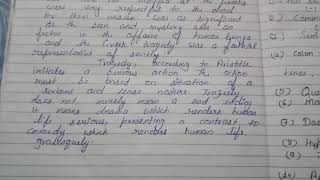 were very respectful to the
for their was as significant
As the sun and mystery was an
factor in the affairs of human beings
and the Greek tragedy was a faithful
representation of society.
Tragedy, according to Aristotle
imitates a serious action. The action
must be based on situation of a
serious and tense nature. Tragedy
does not merely mean a sad ending
it means drama which renders human
life serious, presenting a contrast to
comedy which renders human life
(4) Colon
(5)
(6)
(7) Das
(8) Hy
(9)